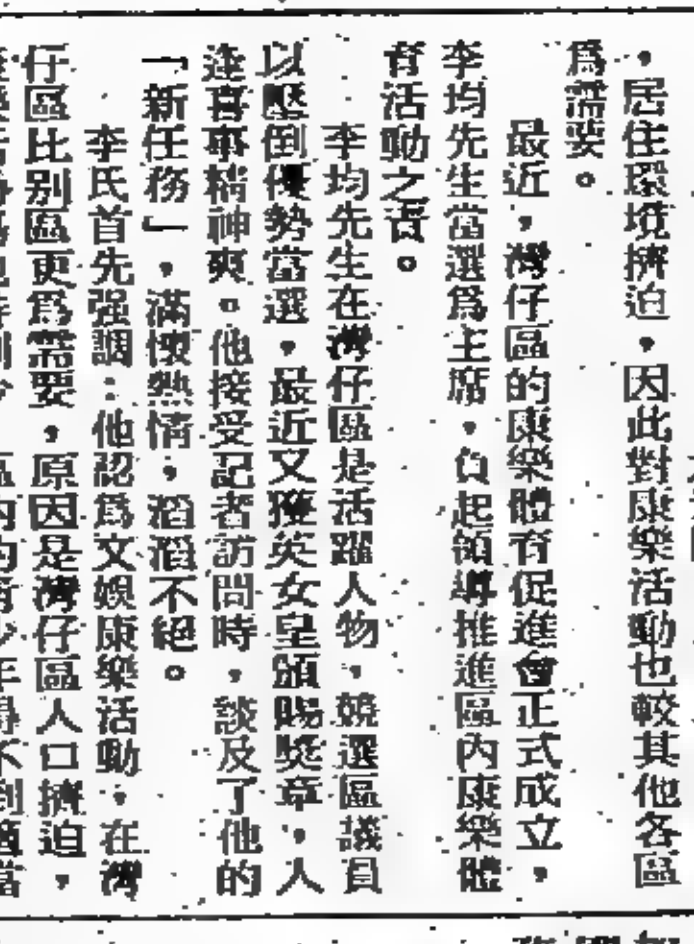 ，居住環境擠迫，因此對康樂活動也較其他各區
爲需要。
最近，灣仔區的康樂體育促進會正式成立，
李均先生當選爲主席，負起領導推進區內康樂體
育活動之責。
李均先生在灣仔區是活躍人物，競選區議員
以壓倒優勢當選，最近又獲英女皇頒賜獎章，人
逢喜事精神爽。他接受記者訪問時，談及了他的
「新任務」，滿懷熱情，滔滔不絕。
李氏首先强調：他認爲文娛康樂活動，在灣
仔區比別區更爲需要，原因是灣仔區人口擠迫，